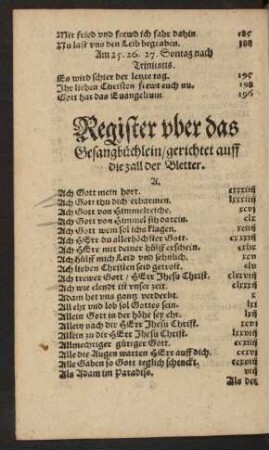 Mit fried vnd frewd ich fahr dahin. 185
Nu last vns den Leib begraben. 188
Am 25. 26. 27. Sontag nach
Trinitatis.
Es wird schier der letzte tag. 195
Ihr lieben Christen frewt euch nu. 198
Gott hat das Euangelium. 196
Register vber das
Gesangbüchlein/ gerichtet auff
die zall der Bletter.
A.
Ach Gott mein hort.
Ach Gott thu dich erbarmen.
Ach Gott von Himmelreiche. xcvj
Ach Gott von Himmel sih darein. clx
Ach Gott wem sol ichs klagen.
Ach HErr du allerhöchster Gott.
Ach HErr mit deiner hülff erschein.
Ach hülff mich Leid vnd sehnlich. xcv
Ach lieben Christen seid getrost.
Ach trewer Gott/ HErr Jhesu Christ.
Ach wie elendt ist vnser zeit.
Adam het vns ganz verderbt. x
All ehr vnd lob sol Gottes sein. lxj
Allein Gott in der höhe sey ehr. lxij
Allein nach dir HErr Jhesu Christ. xcvj
Allein zu dir HErr Jhesu Christ.
Allmechtiger gütiger Gott.
Alle die Augen warten HErr auff dich.
Alle Gaben so Gott teglich schenckt.
Als Adam im Paradiß. viij
Als der